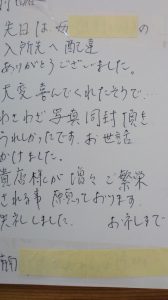 先日は、
の
入所先へ配達
ありがとうございました。
大変喜んでくれたそうで…
わざわざ写真同封頂き
うれしかったです。お世話
かけました。
貴店様が増々ご繁栄
される事願っております。
失礼しました。 お礼まで